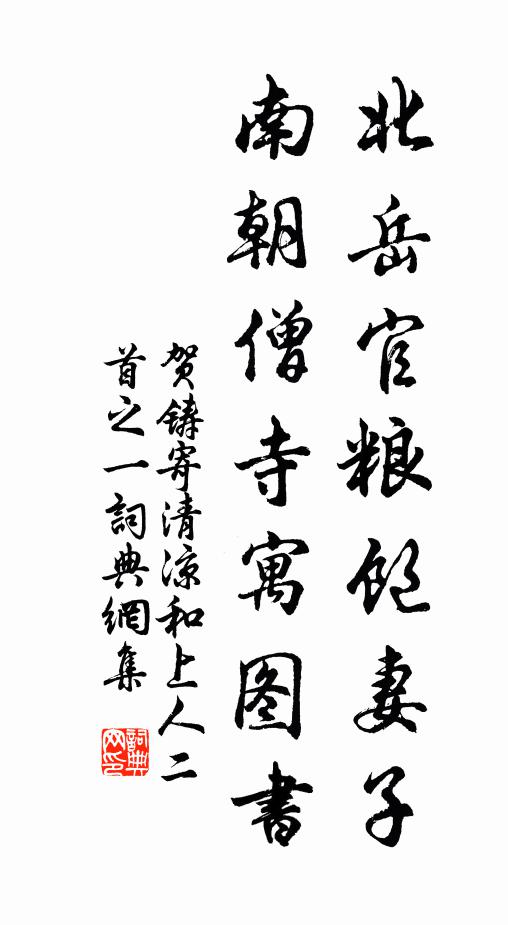 北岳官粮飽妻子
南朝僧寺寓图書
贺鋳寄清凉和上人二
首之一詞典網集
詞典
网印